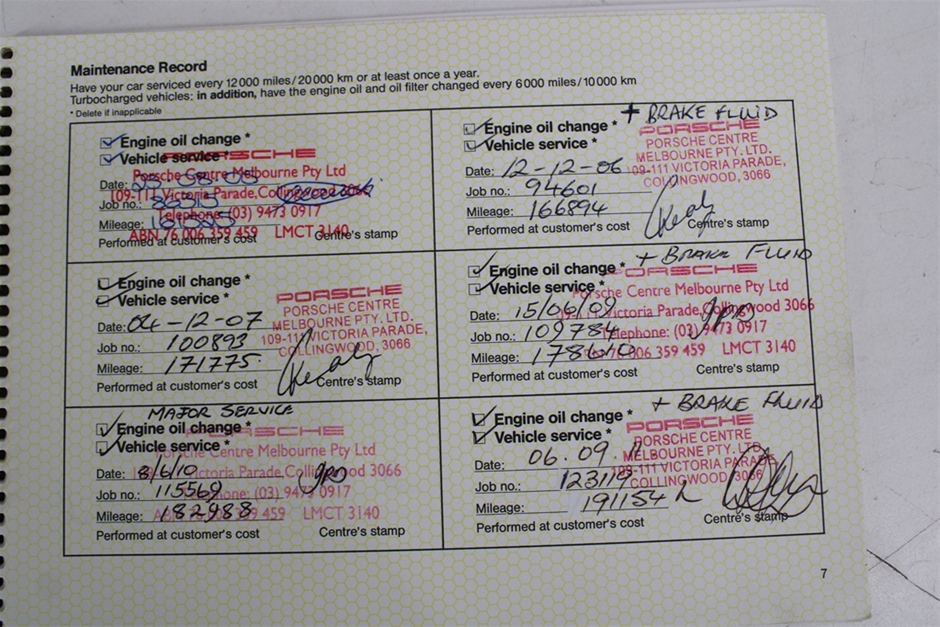 Maintenance Record
Have your car serviced every 12 000 miles / 20 000 km or at least once a year.
Turbocharged vehicles: in addition, have the engine oil and oil filter changed every 6 000 miles / 10 000 km
* Delete if inapplicable
Engine oil change *
Vehicle service *
PORSCHE
Porsche Centre Melbourne Pty Ltd
Date:
109-111 Victoria Parade, Collingwood 3066
Job no.:
Telephone: (03) 9473 0917
Mileage:
ABN 76 006 359 459 LMCT 3140
Performed at customer's cost Centre's stamp
+ BRAKE FLUID
Engine oil change *
Vehicle service *
PORSCHE
PORSCHE CENTRE
MELBOURNE PTY. LTD.
109-111 VICTORIA PARADE,
COLLINGWOOD, 3066
Date: 12-12-06
Job no.: 94601
Mileage: 166894
Performed at customer's cost Centre's stamp
Engine oil change *
Vehicle service *
PORSCHE
PORSCHE CENTRE
MELBOURNE PTY. LTD.
109-111 VICTORIA PARADE,
COLLINGWOOD, 3066
Date: 04-12-07
Job no.: 100893
Mileage: 171775
Performed at customer's cost Centre's stamp
+ BRAKE FLUID
Engine oil change *
Vehicle service *
PORSCHE
Porsche Centre Melbourne Pty Ltd
Date: 15/06/09
Victoria Parade, Collingwood 3066
Job no.: 109784
Telephone: (03) 9473 0917
Mileage:
006 359 459 LMCT 3140
Performed at customer's cost Centre's stamp
MAJOR SERVICE
Engine oil change *
Vehicle service *
PORSCHE
Porsche Centre Melbourne Pty Ltd
Date: 8/6/10
Victoria Parade, Collingwood 3066
Job no.: 115569
(03) 9473 0917
Mileage: 182988
459 LMCT 3140
Performed at customer's cost Centre's stamp
+ BRAKE FLUID
Engine oil change *
Vehicle service *
PORSCHE
PORSCHE CENTRE
MELBOURNE PTY. LTD.
109-111 VICTORIA PARADE,
COLLINGWOOD, 3066
Date: 06.09.
Job no.:
Mileage: 191154
Performed at customer's cost Centre's stamp
7